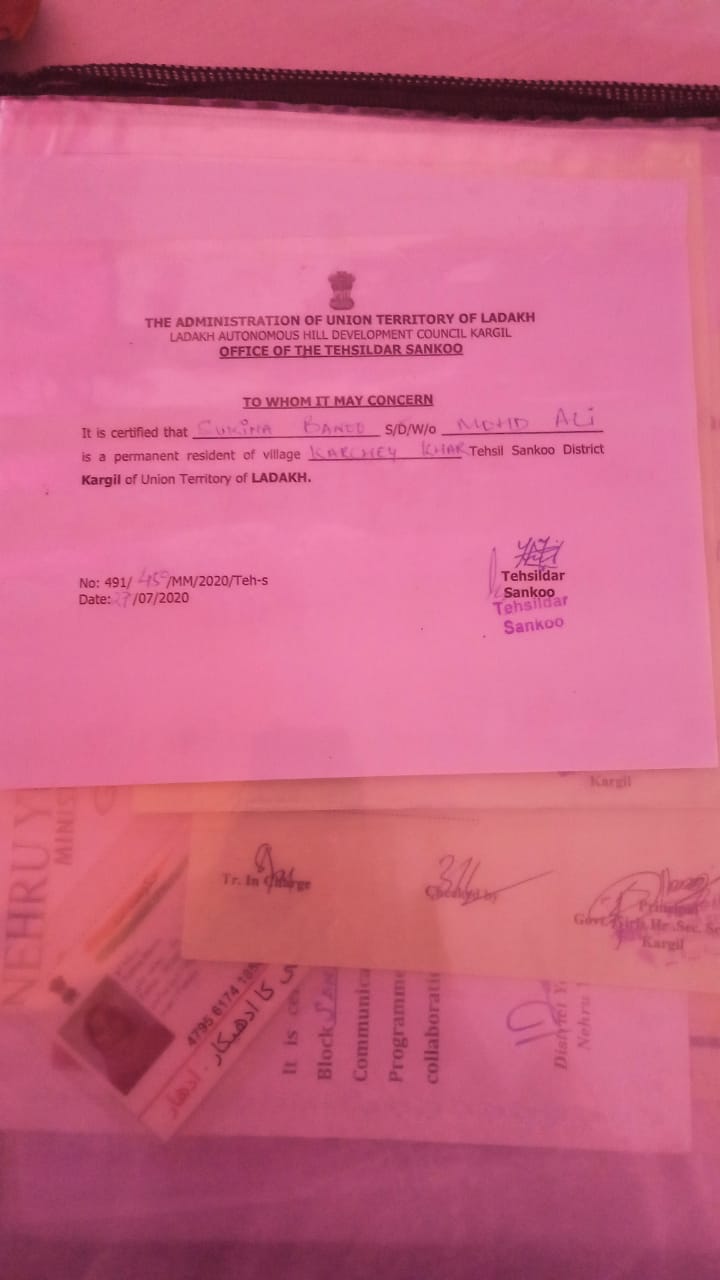 THE ADMINISTRATION OF UNION TERRITORY OF LADAKH
LADAKH AUTONOMOUS HILL DEVELOPMENT COUNCIL KARGIL
OFFICE OF THE TEHSILDAR SANKOO
TO WHOM IT MAY CONCERN
It is certified that SUKINA BANOO S/D/W/o MOHD ALi
is a permanent resident of village KARCHEY KHAR Tehsil Sankoo District
Kargil of Union Territory of LADAKH.
No: 491/ 459/MM/2020/Teh-s
Date: 27/07/2020
Tehsildar
Sankoo
Tehsildar
Sankoo
Kargil
Tr. In Charge
Checked by
Principal
Govt. Girls Hr. Sec.
Kargil
NEHRU Y
MINIS
4795 6174
کا ادھیکار
ادھار
It is
Block
Communica
Programme
collaborati
District Y
Nehru